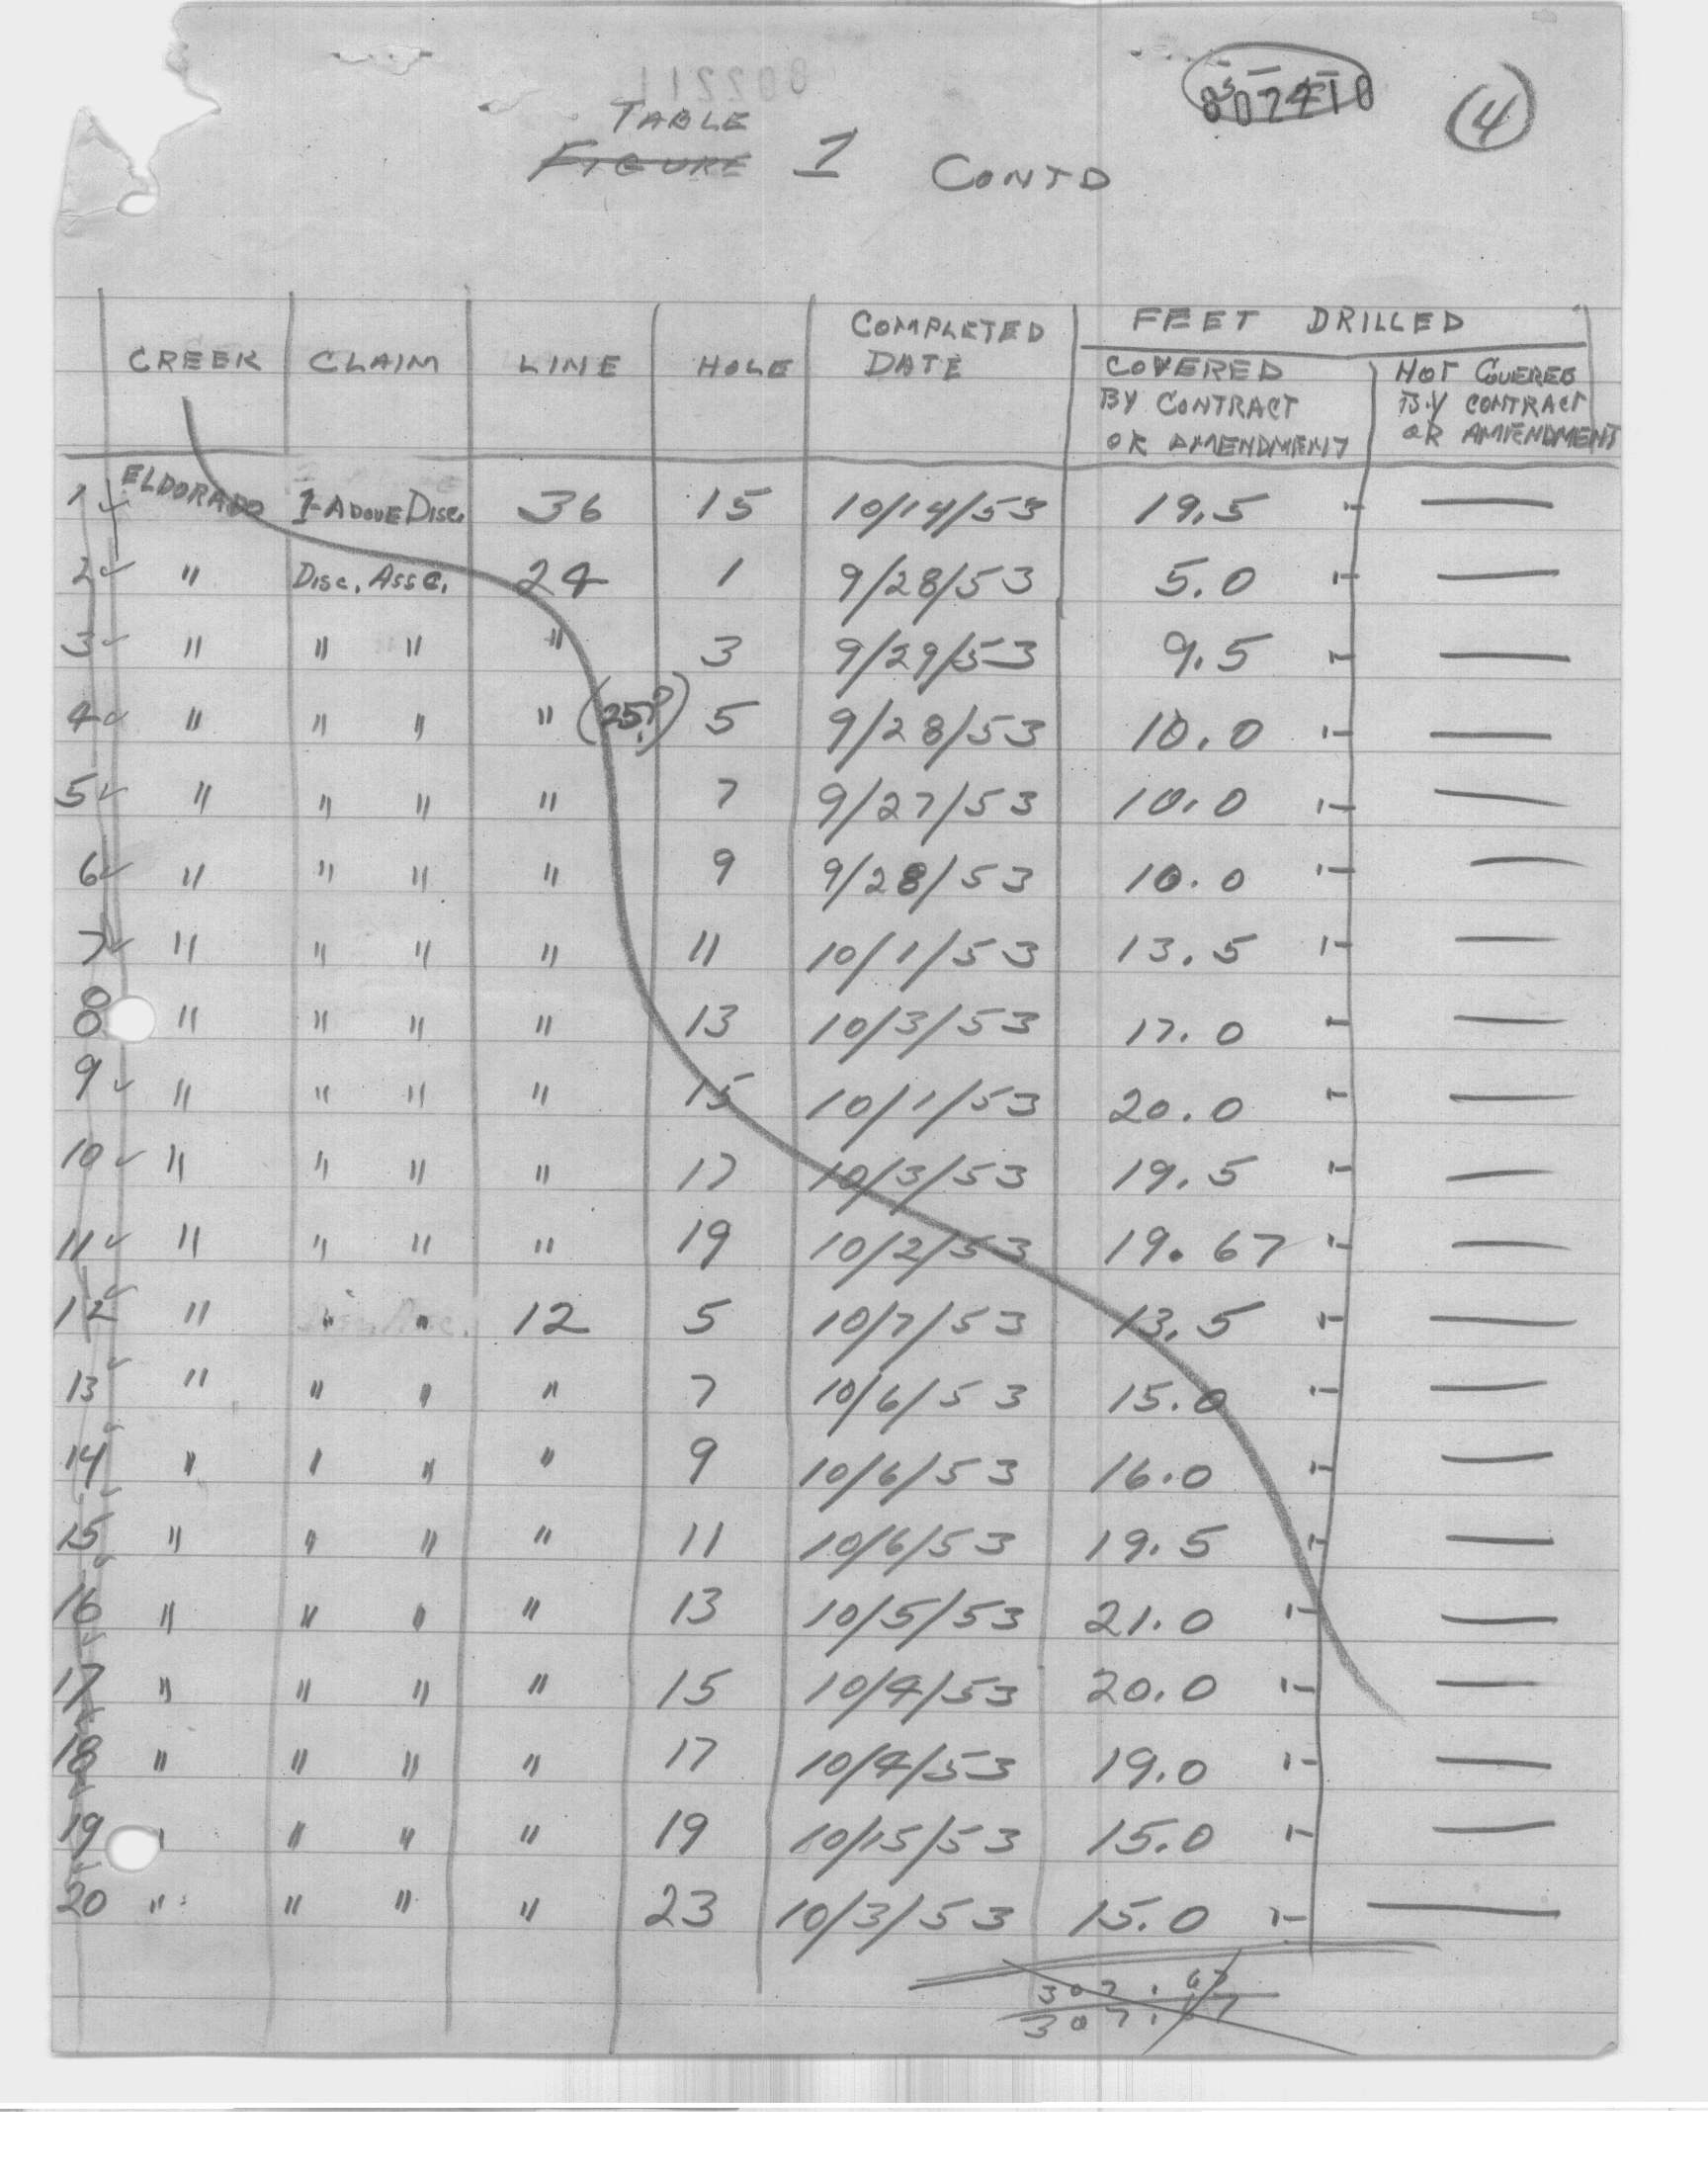 TABLE
FIGURE 1 CONTD
4
FEET DRILLED
CREEK CLAIM LINE HOLE COMPLETED DATE COVERED BY CONTRACT OR AMENDMENT NOT COVERED BY CONTRACT OR AMENDMENT
1 ✓ ELDORADO 1-ABOVE DISC. 36 15 10/14/53 19.5 "- —
2 ✓ " DISC. ASSC. 24 1 9/28/53 5.0 "- —
3 ✓ " " " " 3 9/29/53 9.5 "- —
4 ✓ " " " " (25?) 5 9/28/53 10.0 "- —
5 ✓ " " " " 7 9/27/53 10.0 "- —
6 ✓ " " " " 9 9/28/53 10.0 "- —
7 ✓ " " " " 11 10/1/53 13.5 "- —
8 " " " " 13 10/3/53 17.0 "- —
9 ✓ " " " " 15 10/1/53 20.0 "- —
10 ✓ " " " " 17 10/3/53 19.5 "- —
11 ✓ " " " " 19 10/2/53 19.67 "- —
12 ✓ " " " 12 5 10/7/53 13.5 "- —
13 ✓ " " " " 7 10/6/53 15.0 "- —
14 ✓ " " " " 9 10/6/53 16.0 "- —
15 ✓ " " " " 11 10/6/53 19.5 "- —
16 ✓ " " " " 13 10/5/53 21.0 "- —
17 " " " " 15 10/4/53 20.0 "- —
18 " " " " 17 10/4/53 19.0 "- —
19 " " " " 19 10/15/53 15.0 "- —
20 " " " " 23 10/3/53 15.0 "- —
307.67
307.67